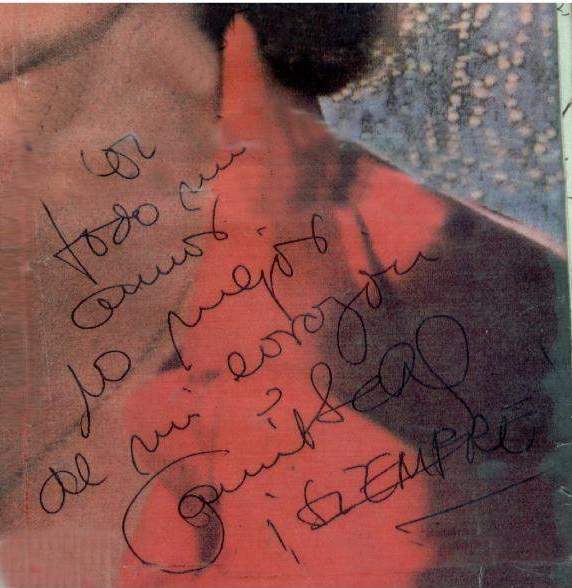 con
todo mi
amor
lo mejor
de mi corazon
Camilo Sesto
¡SIEMPRE!